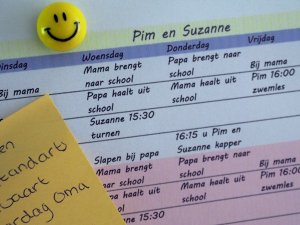 Pim en Suzanne
Dinsdag Woensdag Donderdag Vrijdag
Mama brengt Papa brengt naar Bij mama
Bij mama naar school school Pim 16:00
Papa haalt uit Mama haalt uit zwemles
school school
Suzanne 15:30
turnen 16:15 u Pim en
Suzanne kapper
Slapen bij papa
Mama brengt Papa brengt naar Bij mama
naar school school Pim 16:00
Mama haalt uit zwemles
haalt uit school
15:30
Oma